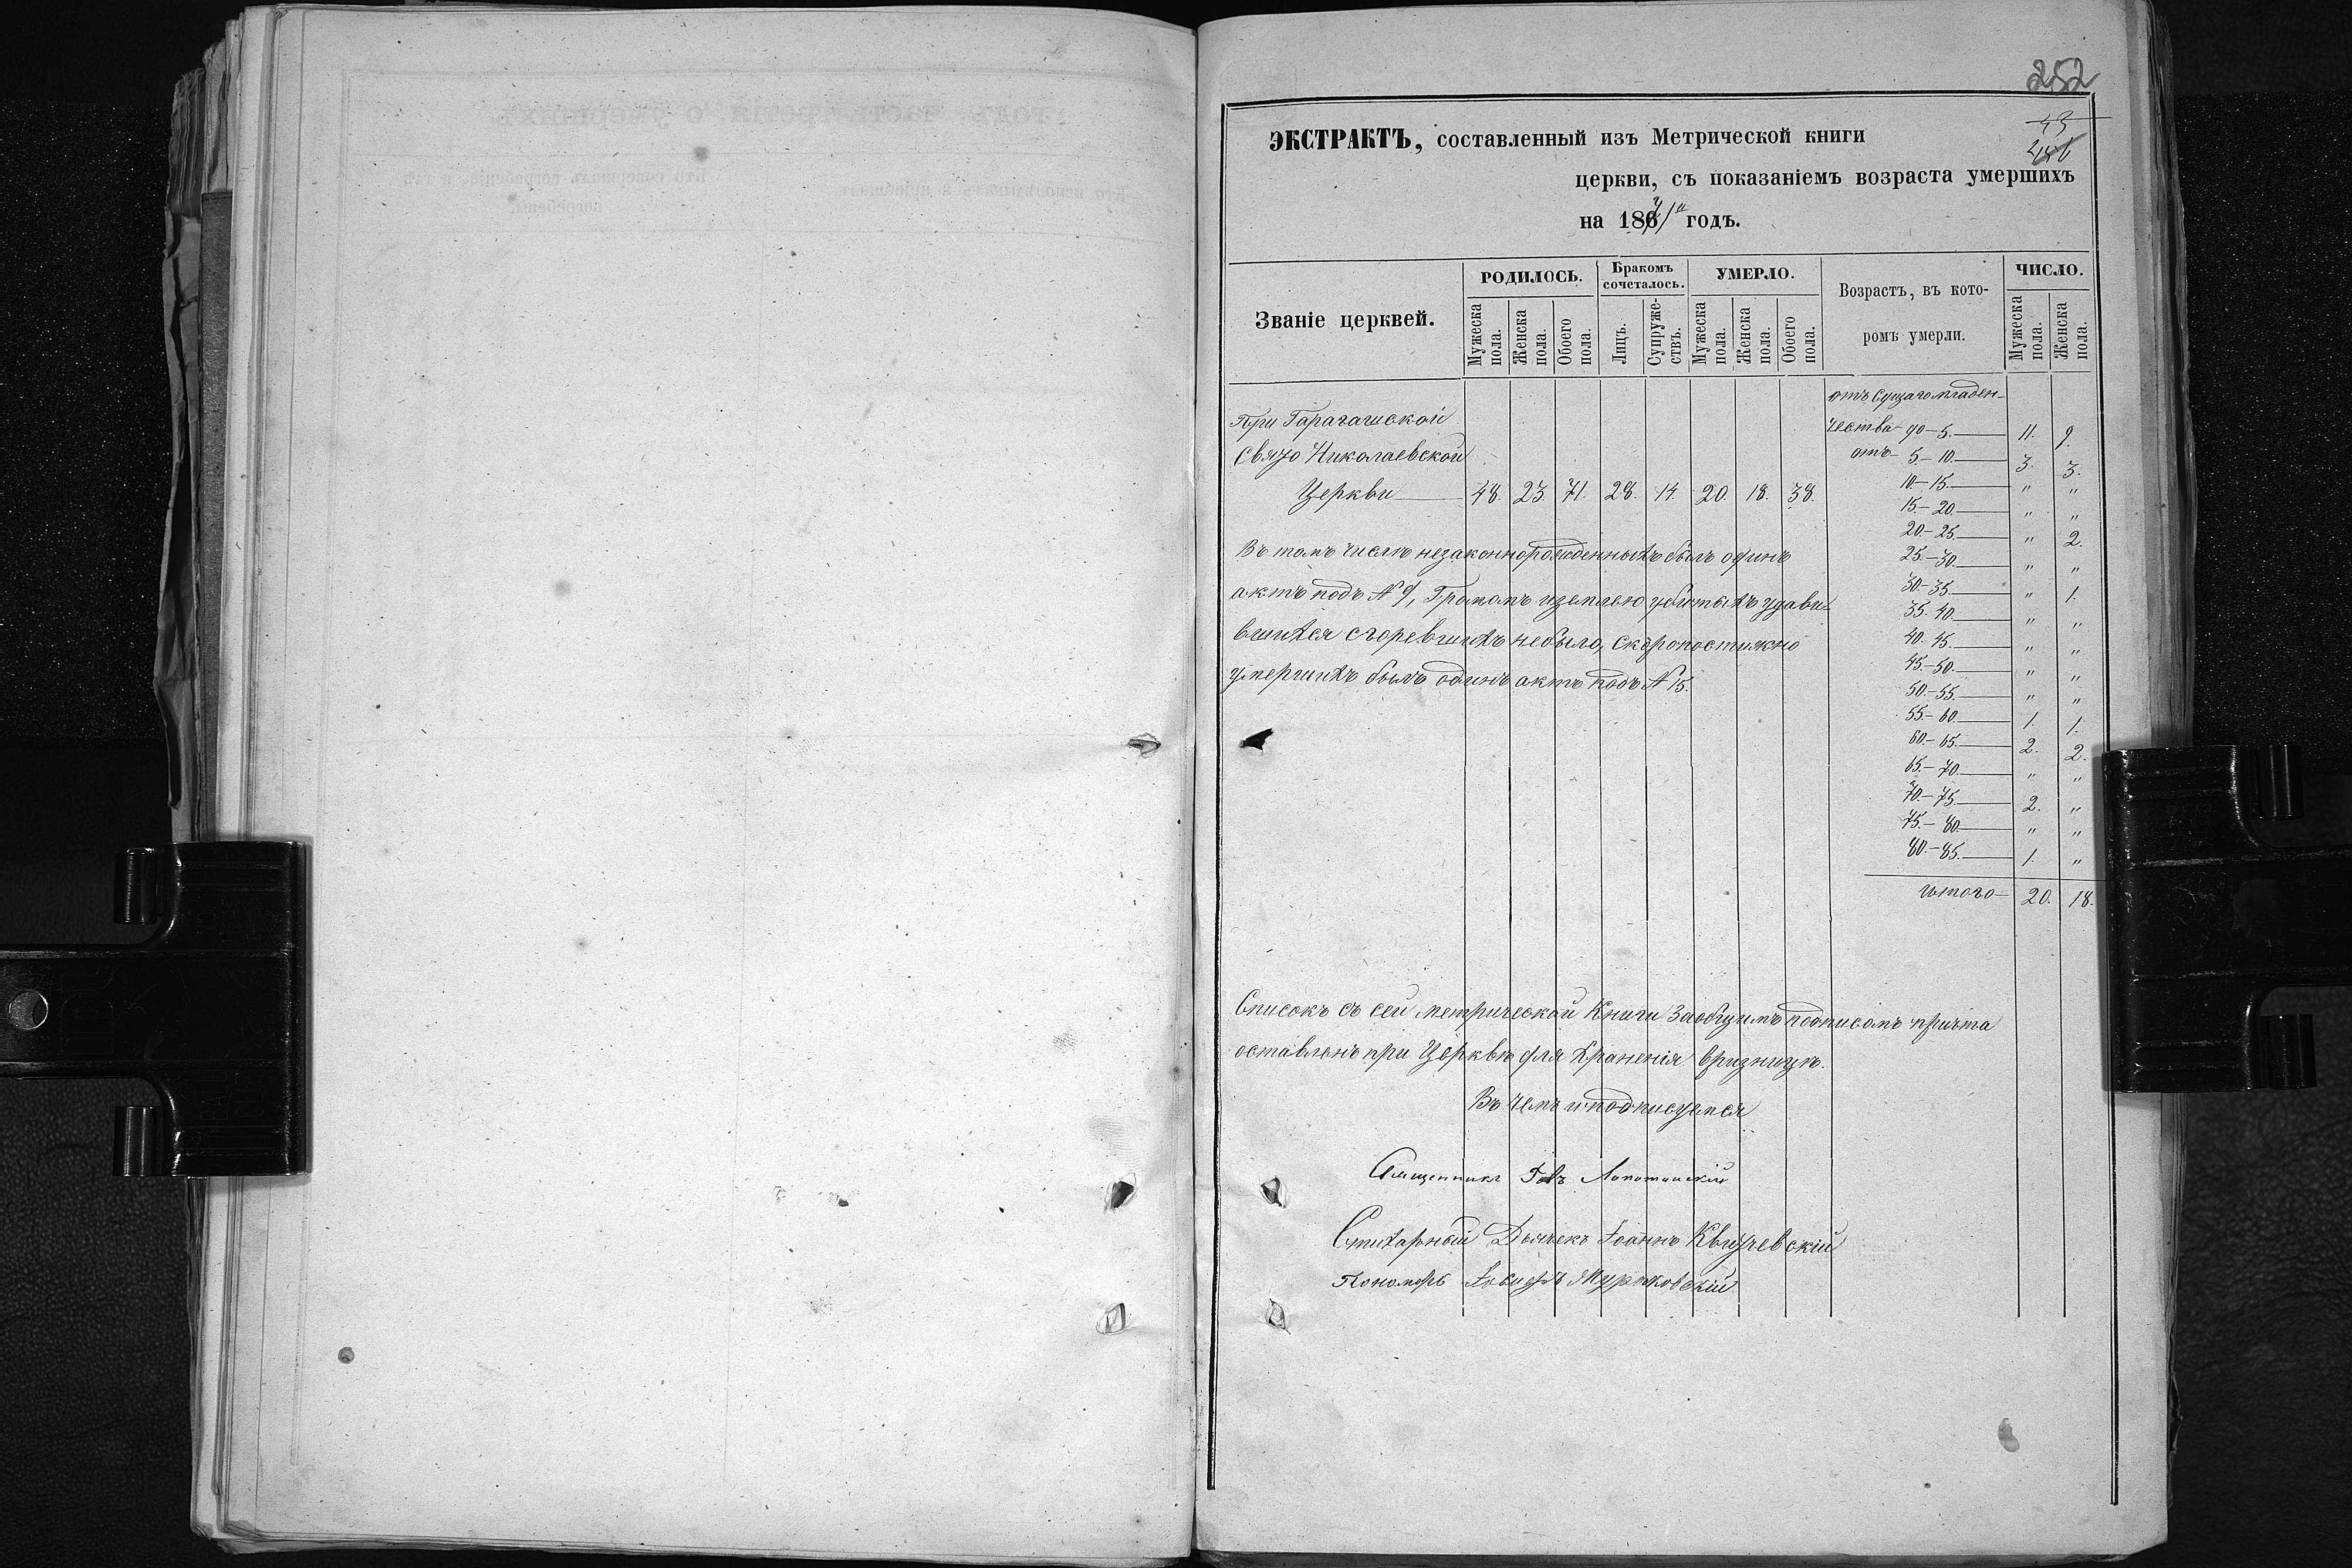 252
43
ЭКСТРАКТЪ, составленный изъ Метрической книги
церкви, съ показаніемъ возраста умершихъ
на 1871 годъ.
Званіе церквей.
РОДИЛОСЬ.
Мужеска пола.
Женска пола.
Обоего пола.
Бракомъ сочеталось.
Лицъ.
Супружествъ.
УМЕРЛО.
Мужеска пола.
Женска пола.
Обоего пола.
Возрастъ, въ кото-
ромъ умерли.
ЧИСЛО.
Мужеска пола.
Женска пола.
При Гарагашской
Свято Николаевской
Церкви 48. 23. 71. 28. 14 20. 18. 38.
отъ сущаго младен-
чества до-5. 11. 9.
отъ 5-10. 3. 3.
10-15. " "
15-20. " "
20-25. " 2.
25-30. " "
30-35. " 1.
35-40. " "
40-45. " "
45-50. " "
50-55. " "
55-60. 1. 1.
60-65. 2. 2.
65-70. " "
70-75. 2. "
75-80. " "
80-85. 1. "
итого 20. 18.
Въ томъ числѣ незаконнорожденныхъ былъ одинъ
актъ подъ № 9, Громомъ и землею убитыхъ удави-
вшихся сгоревшихъ небыло, скоропостижно
умершихъ былъ одинъ актъ подъ № 15.
Списокъ съ сей метрической Книги за общимъ подписомъ причта
оставленъ при Церквѣ для храненія вризницѣ.
Въ чемъ и подписуемся
Священникъ Лопатинскій
Стихарный Дьячекъ Іоаннъ
Пономарь Іосифъ